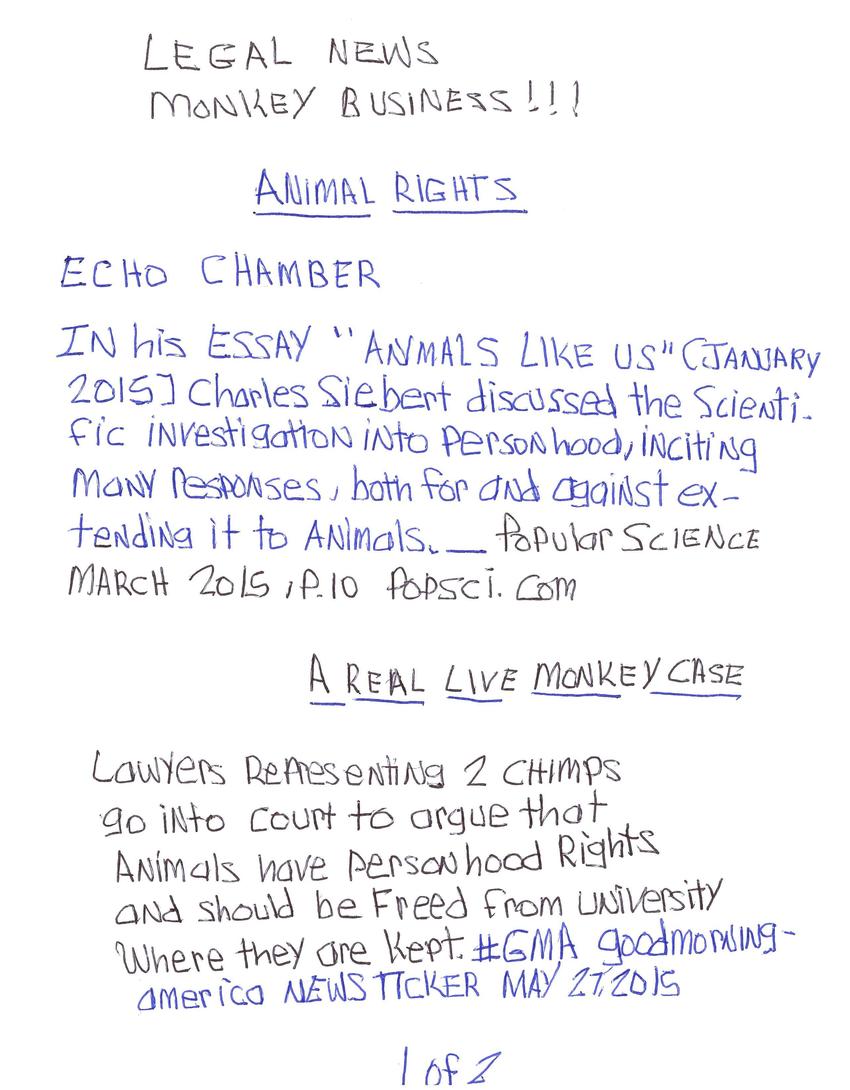 LEGAL NEWS
MONKEY BUSINESS!!!
ANIMAL RIGHTS
ECHO CHAMBER
IN his ESSAY "ANMALS LIKE US" (JANUARY
2015] Charles Siebert discussed the Scienti-
fic investigation into personhood, inciting
MANY Responses, both for and against ex-
tending it to ANimals. — Popular SCIENCE
MARCH 2015, P.10 POPSCI.COM
A REAL LIVE MONKEY CASE
Lawyers Representing 2 CHIMPS
go into court to argue that
ANimals have personhood Rights
and should be Freed from university
Where they are kept. #GMA goodmorning-
america NEWS TICKER MAY 27, 2015
1 of 2